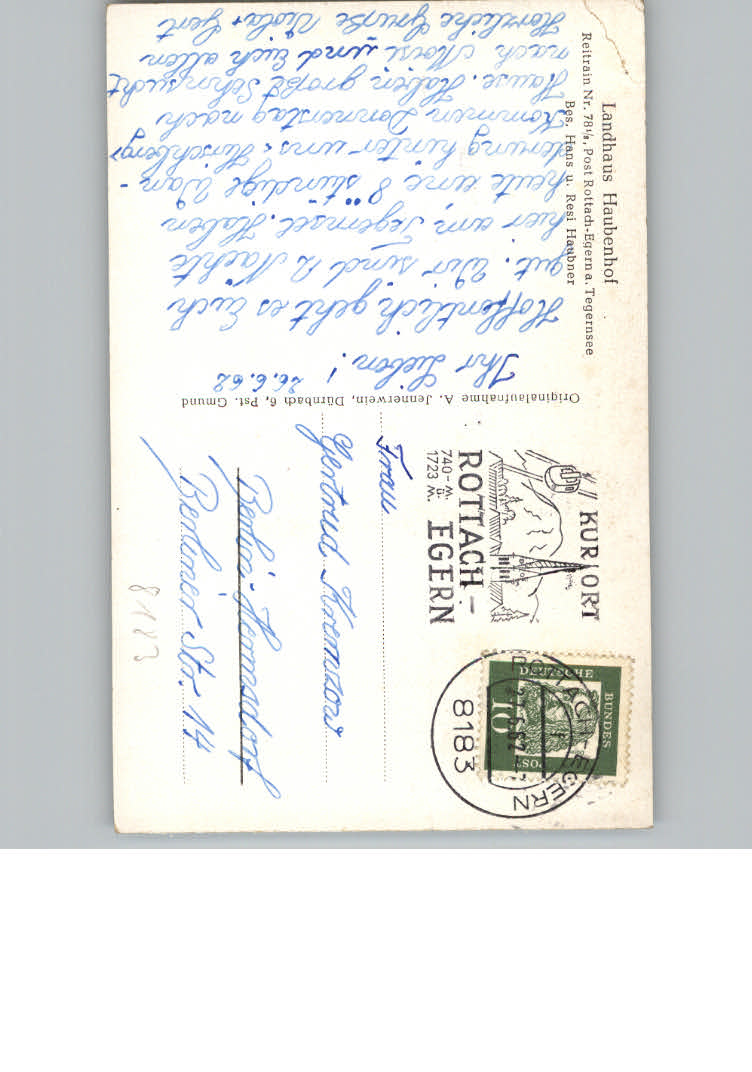 Landhaus Haubenhof
Reitrain Nr. 78 1/2, Post Rottach-Egern a. Tegernsee
Bes. Hans u. Resi Haubner
Originalaufnahme A. Jennerwein, Dürnbach 6, Pst. Gmund
26.6.62
Ihr Lieben!
Hoffentlich geht es Euch
gut. Wir sind 12 Nächte
hier am Tegernsee. Haben
heute eine 8 stündige Wan-
derung hinter uns. Hirschberg
Kommen Donnerstag nach
Hause. Haben große Sehnsucht
nach und Euch allen
Herzliche Grüße Viola + Gert
KURORT
ROTTACH-
EGERN
740- M.
ü.
1723 M.
ROTTACH-EGERN
8183
DEUTSCHE
BUNDES
POST
10
Frau
Gertrud
Berlin-Hermsdorf
Berliner Str. 14
8183